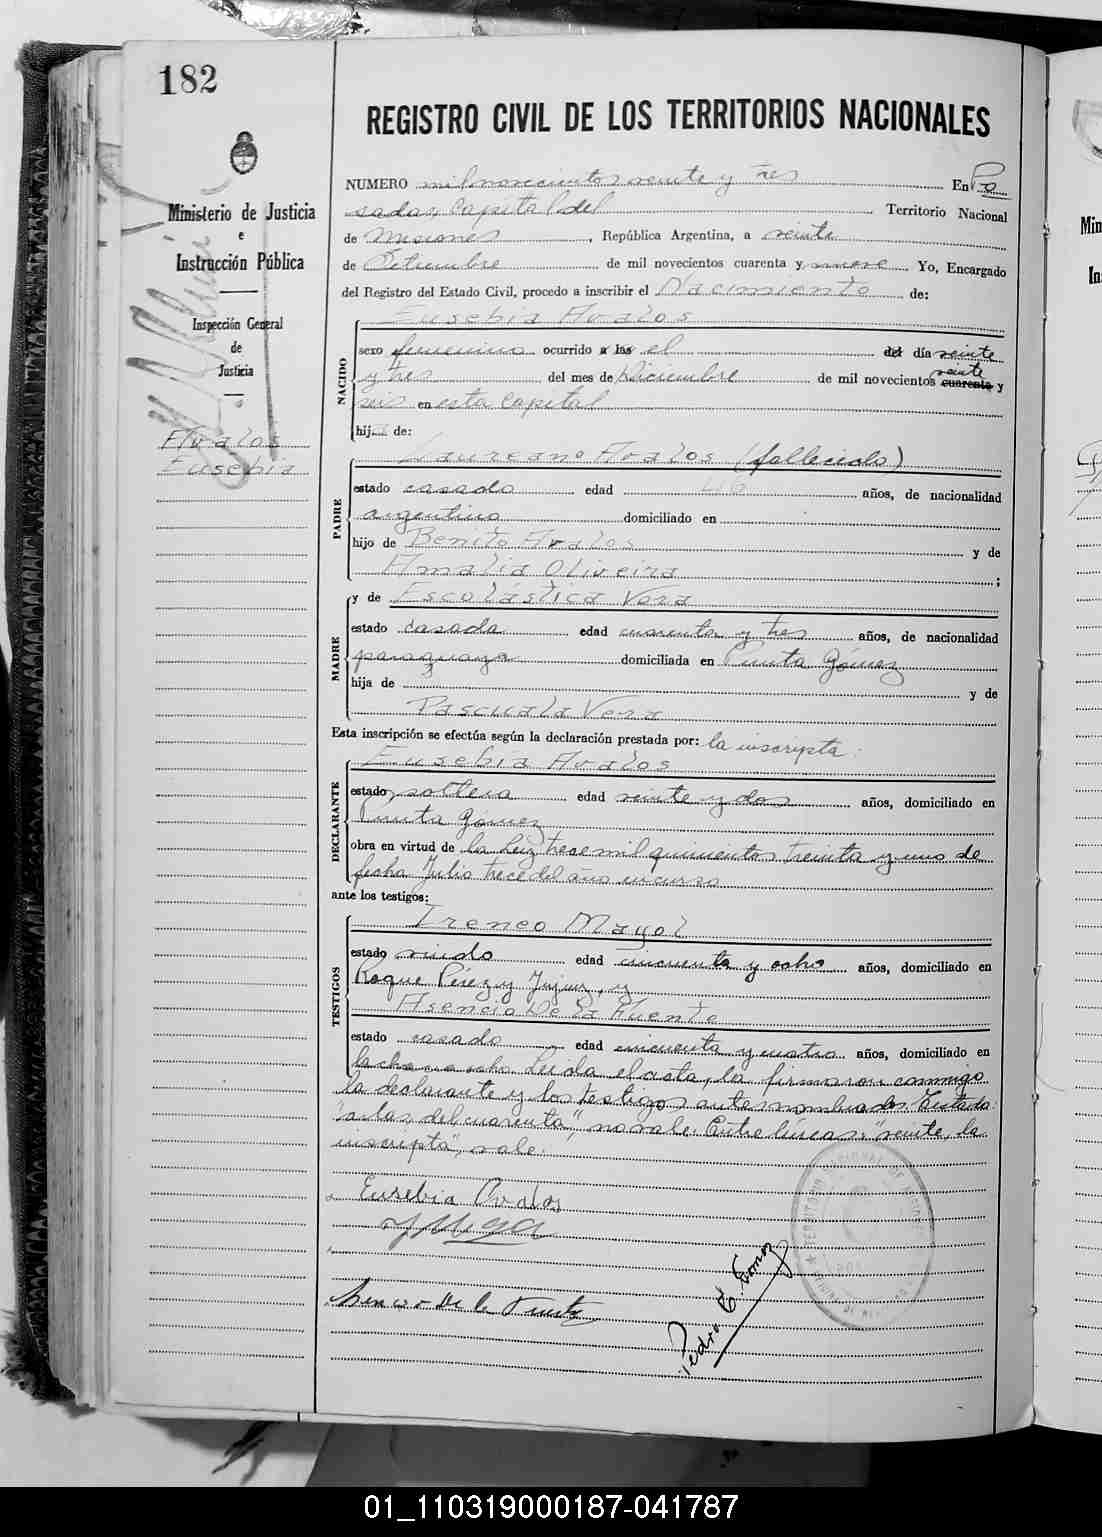 182
REGISTRO CIVIL DE LOS TERRITORIOS NACIONALES
Ministerio de Justicia
e
Instrucción Pública
Inspección General
de
Justicia
Avalos
Eusebia
NUMERO mil novecientos veinte y tres En Po
sadas, Capital del Territorio Nacional
de Misiones, República Argentina, a veinte
de Setiembre de mil novecientos cuarenta y nueve Yo, Encargado
del Registro del Estado Civil, procedo a inscribir el Nacimiento de:
NACIDO
Eusebia Avalos
sexo femenino ocurrido a las el del día veinte
y tres del mes de Diciembre de mil novecientos cuarenta veinte y
seis en esta Capital
hij de:
PADRE
Laureano Avalos (fallecido)
estado casado edad años, de nacionalidad
argentino domiciliado en
hijo de Benito Avalos y de
Amalia Oliveira;
MADRE
y de Escolástica Vera
estado casada edad cuarenta y tres años, de nacionalidad
paraguaya domiciliada en Punta Gómez
hija de y de
Pascuala Vera
Esta inscripción se efectúa según la declaración prestada por: la inscripta:
DECLARANTE
Eusebia Avalos
estado soltera edad veinte y dos años, domiciliado en
Punta Gómez
obra en virtud de la Ley trece mil quinientos treinta y uno de
fecha Julio trece del año en curso
ante los testigos:
TESTIGOS
Ireneo Mayol
estado viudo edad cincuenta y ocho años, domiciliado en
Roque Pérez y Jujuy, y
Asencio De la Fuente
estado casado edad cincuenta y cuatro años, domiciliado en
Leida el acta, la firmaron conmigo
la declarante y los testigos antes nombrados. Testado:
"a las, del, cuarenta", no vale. Entre líneas: "veinte, la
inscripta", vale.
Eusebia Avalos
Asencio De la Fuente
Pedro E. Gomez
01_110319000187-041787